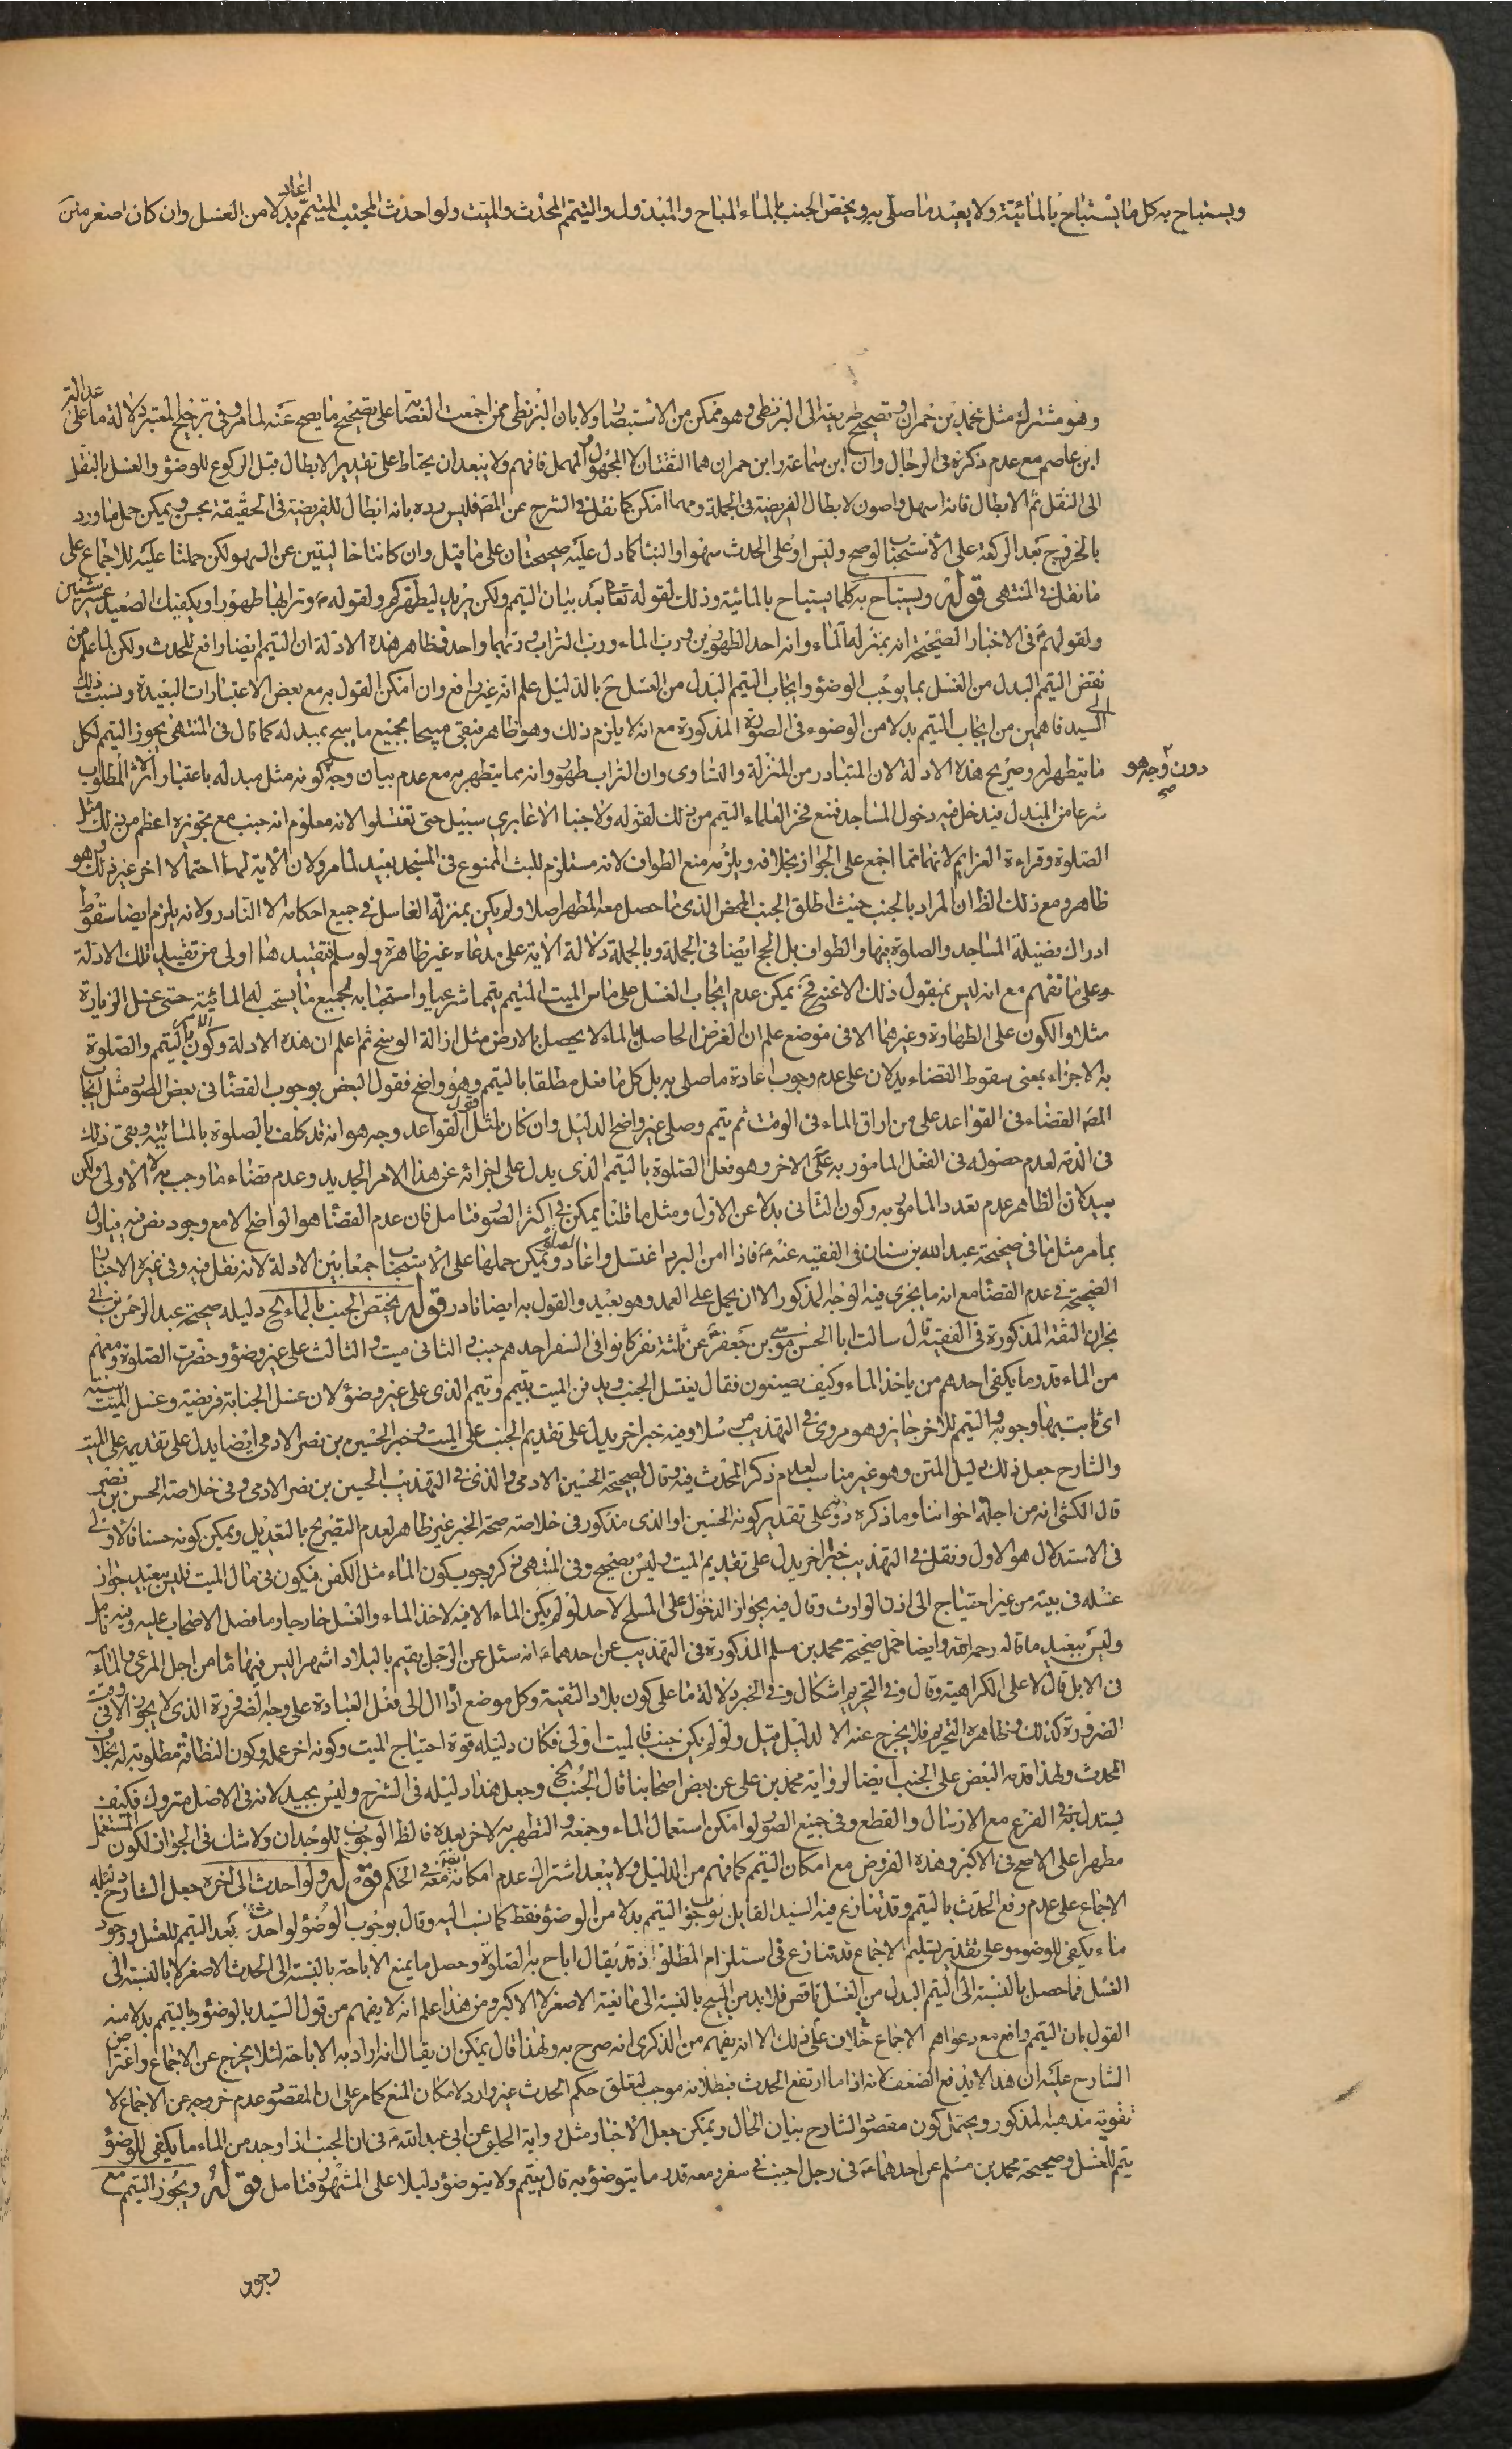 ويستباح به كل ما يستباح بالمائية ولا يعيد ما صلى به ويختص الجنب بالماء المباح والمبذول والتيمم المحدث والميت ولو احدث المجنب المتيمم اعاد بدلا من الغسل وان كان اصغر
وهو مشترك مثل محمد بن حمران وتصحيح طريقه الى البزنطي وهو ممكن من الاستبصار ولا بان البزنطي ممن اجمعت العصابة على تصحيح ما يصح عنه لما مر وفي ترجيح المعتبر دلالة ما على عدالة
ابن عاصم مع عدم ذكره في الرجال وان ابن سماعة وابن حمران هما الثقتان لا المجهول والمهمل فافهم ولا يبعد ان يحتاط على تقدير الابطال قبل الركوع للوضوء والغسل بالنقل
الى النفل ثم الابطال فانه اسهل واصون لابطال الفريضة في الجملة ومهما امكن كما نقل في الشرح عن المصـ فليس رده بانه ابطال للفريضة في الحقيقة بحسن ويمكن حمل ما ورد
بالخروج بعد الركعة على الاستحباب لو صح وليس او على الحدث سهوا والبناء كما دل عليه صحيحتان على ما قيل وان كانتا خاليتين عن السهو لكن حملتا عليه للاجماع على
ما نقل في المنتهى قوله ويستباح به كلما يستباح بالمائية وذلك لقوله تعالى بعد بيان التيمم ولكن يريد ليطهركم ولقوله وترابها طهورا ويكفيك الصعيد عشر سنين
ولقولهم في الاخبار الصحيحة انه بمنزلة الماء وانه احد الطهورين ورب الماء ورب التراب وربهما واحد فظاهر هذه الادلة ان التيمم ايضا رافع للحدث ولكن لما علم من
نقض التيمم البدل من الغسل بما يوجب الوضوء وايجاب التيمم البدل من الغسل ح بالدليل علم انه غير رافع وان امكن القول به مع بعض الاعتبارات البعيدة ونسبت ذلك
الى السيد فاهمين من ايجاب التيمم بدلا من الوضوء في الصورة المذكورة مع انه لا يلزم ذلك وهو ظاهر فبقي مبيحا بجميع ما يبيح بمبدله كما قال في المنتهى يجوز التيمم لكل
ما يتطهر له وصريح هذه الادلة لان المتبادر من المنزلة والتساوى وان التراب طهور وانه مما يتطهر به مع عدم بيان وجه كونه مثل مبدله باعتبار الاثر المطلوب
دون وجه هو
شرعا من المبدل فيدخل فيه دخول المساجد فمنع فخر العلماء التيمم من ذلك لقوله ولا جنبا الا عابري سبيل حتى تغتسلوا لانه معلوم انه جنب مع تجويزه اعظم من ذلك مثل
الصلوة وقراءة العزايم لانهما مما اجمع على الجواز بخلافه ويلزمه منع الطواف لانه مستلزم للبث الممنوع في المسجد بعيد لما مر ولان الاية لها احتمالا اخر غير ذلك وهو
ظاهر ومع ذلك الظ ان المراد بالجنب حيث اطلق الجنب المحض الذي ما حصل معه المطهر اصلا ولم يكن بمنزلة الغاسل في جميع احكامه الا النادر ولانه يلزم ايضا سقوط
ادراك فضيلة المساجد والصلوة فيها والطواف بل الحج ايضا في الجملة وبالجملة دلالة الاية على مدعاه غير ظاهرة ولو سلم فتقييد هذا اولى من تقييد تلك الادلة
وعلى ما تفهم مع انه ليس بمنقول ذلك الا عنه فح يمكن عدم ايجاب الغسل على ماس الميت المتيمم تيمما شرعيا واستحبابه لجميع ما يستحب له المائية حتى غسل الزيارة
مثلا والكون على الطهارة وغيرهما الا في موضع علم ان الغرض الحاصل بالماء لا يحصل بالارض مثل ازالة الوسخ ثم اعلم ان هذه الادلة وكون التيمم والصلوة
به الاجزاء بمعنى سقوط القضاء يدلان على عدم وجوب اعادة ما صلى به بل كل ما فعل مطلقا بالتيمم وهو واضح فقول البعض بوجوب القضاء في بعض الصور مثل ايجاب
المصـ القضاء في القواعد على من اراق الماء في الوقت ثم تيمم وصلى غير واضح الدليل وان كان لمثل قول القواعد وجه هو انه قد كلف بالصلوة بالمائية وبقى ذلك
في الذمة لعدم حصوله في الفعل المامور به على الاخر وهو فعل الصلوة بالتيمم الذي يدل على اجزائه عن هذا الامر الجديد وعدم قضاء ما وجب بالامر الاولى ولكن
بعيد لان الظاهر عدم تعدد المامور به وكون الثاني بدلا عن الاول ومثل ما قلنا يمكن في اكثر الصور فتامل فان عدم القضاء هو الواضح الا مع وجود نص فيه فياول
بما مر مثل ما في صحيحة عبد الله بن سنان في الفقيه عنه فاذا امن البرد اغتسل واعاد الصلوة ويمكن حملها على الاستحباب جمعا بين الادلة لانه نقل فيه وفي غيره الاخبار
الصحيحة في عدم القضاء مع انه ما يجرى فيه الوجه المذكور الا ان يحمل على العمد وهو بعيد والقول به ايضا نادر قوله ويختص الجنب بالماء الخ دليله صحيحة عبد الرحمن بن ابي
نجران الثقة المذكورة في الفقيه قال سالت ابا الحسن موسى بن جعفر عن ثلثة نفر كانوا في السفر احدهم جنب والثاني ميت والثالث على غير وضوء وحضرت الصلوة ومعهم
من الماء قدر ما يكفى احدهم من ياخذ الماء وكيف يصنعون فقال يغتسل الجنب ويدفن الميت بتيمم وتيمم الذي على غير وضوء لان غسل الجنابة فريضة وغسل الميت سنة
اى ثابت بها وجوبه والتيمم للاخر جايز وهو مروى في التهذيب مرسلا وفيه خبر اخر يدل على تقديم الجنب على الميت وخبر الحسين بن نصر الادمى ايضا يدل على تقديمه على الميت
والشارح جعل ذلك دليل المتن وهو غير مناسب لعدم ذكر المحدث فيه وقال لصحيحة الحسين الادمى والذي في التهذيب الحسين بن نصر الادمى وفي خلاصة الحسن بن نصر
قال الكشى انه من اجلة اخواننا وما ذكره وعلى تقدير كونه الحسين او الذي مذكور في خلاصة صحة الخبر غير ظاهر لعدم التصريح بالتعديل ويمكن كونه حسنا فالاولى
في الاستدلال هو الاول ونقل في التهذيب خبرا اخر يدل على تقديم الميت وليس بصحيح وفي المنتهى ذكر وجوب كون الماء مثل الكفن فيكون في مال الميت فليس ببعيد جواز
غسله في بيته من غير احتياج الى اذن الوارث وقال فيه بجواز الدخول على المسلح لاحد لو لم يكن الماء الا فيه لاخذ الماء والغسل خارجا وما فصل الاصحاب عليه وفيه تامل
وليس ببعيد ما قاله رحمه الله وايضا حمل صحيحة محمد بن مسلم المذكورة في التهذيب عن احدهما انه سئل عن الرجل يقيم بالبلاد اشهر اليس فيها ماء من اجل المرعى والماء
في الابل قال لا على الكراهية وقال وفي التحريم اشكال وفي الخبر دلالة ما على كون بلاد التقية وكل موضع ادى الى فعل العبادة على وجه الضرورة الذي لا يجوز الا في وقت
الضرورة كذلك وظاهره التحريم فلا يخرج عنه الا لدليل قيل ولو لم يكن جنب فالميت اولى فكان دليله قوة احتياج الميت وكونه اخر عمله وكون النظافة مطلوبة له بخلاف
المحدث ولهذا قدمه البعض على الجنب ايضا لرواية محمد بن على عن بعض اصحابنا قال الجنب الخ وجعل هذا دليله في الشرح وليس بجيد لانه في الاصل متروك فكيف
يستدل به في الفرع مع الارسال والقطع وفي جميع الصور لو امكن استعمال الماء وجمعه والتطهر به لاخر بعده فالظ الوجوب للوجدان ولا شك في الجواز لكون المستعمل
مطهرا على الاصح في الاكبر وهذه الفروض مع امكان التيمم كما فهم من الدليل ولا يبعد اشتراك عدم امكانه معه في الحكم قوله ولو احدث الى اخره جعل الشارح دليله
الاجماع على عدم رفع الحدث بالتيمم وقد تنازع فيه السيد القايل بوجوب التيمم بدلا من الوضوء فقط كما نسب اليه وقال بوجوب الوضوء لو احدث بعد التيمم للغسل ووجود
ماء يكفى للوضوء وعلى تقدير تسليم الاجماع قد تنازع في استلزام المطلوب اذ قد يقال اباح به الصلوة وحصل ما يمنع الاباحة بالنسبة الى الحدث الاصغر لا بالنسبة الى
الغسل فما حصل بالنسبة الى التيمم البدل من الغسل ناقض فلابد من المبيح بالنسبة الى مانعية الاصغر لا الاكبر ومن هذا علم انه لا يفهم من قول السيد بالوضوء والتيمم بدلا منه
القول بان التيمم رافع مع دعواهم الاجماع على خلاف ذلك الا انه يفهم من الذكرى انه صرح به ولهذا قال يمكن ان يقال انه اراد به الاباحة لئلا يخرج عن الاجماع واعتراض
الشارح عليه ان هذا لا يدفع الضعف لانه اذا ما ارتفع الحدث فبطلانه موجب لتعلق حكم الحدث غير وارد لامكان المنع كما مر على ان المقصود عدم خروجه عن الاجماع لا
تقوية مذهبه المذكور ويحتمل كون مقصود الشارح بيان الحال ويمكن جعل الاخبار مثل رواية الحلبي عن ابي عبد الله في ان الجنب اذا وجد من الماء ما يكفى للوضوء
يتيمم للغسل وصحيحة محمد بن مسلم عن احدهما في رجل اجنب في سفر ومعه قدر ما يتوضؤ به قال يتيمم ولا يتوضؤ دليلا على المشهور فتامل قوله ويجوز التيمم مع
وجود